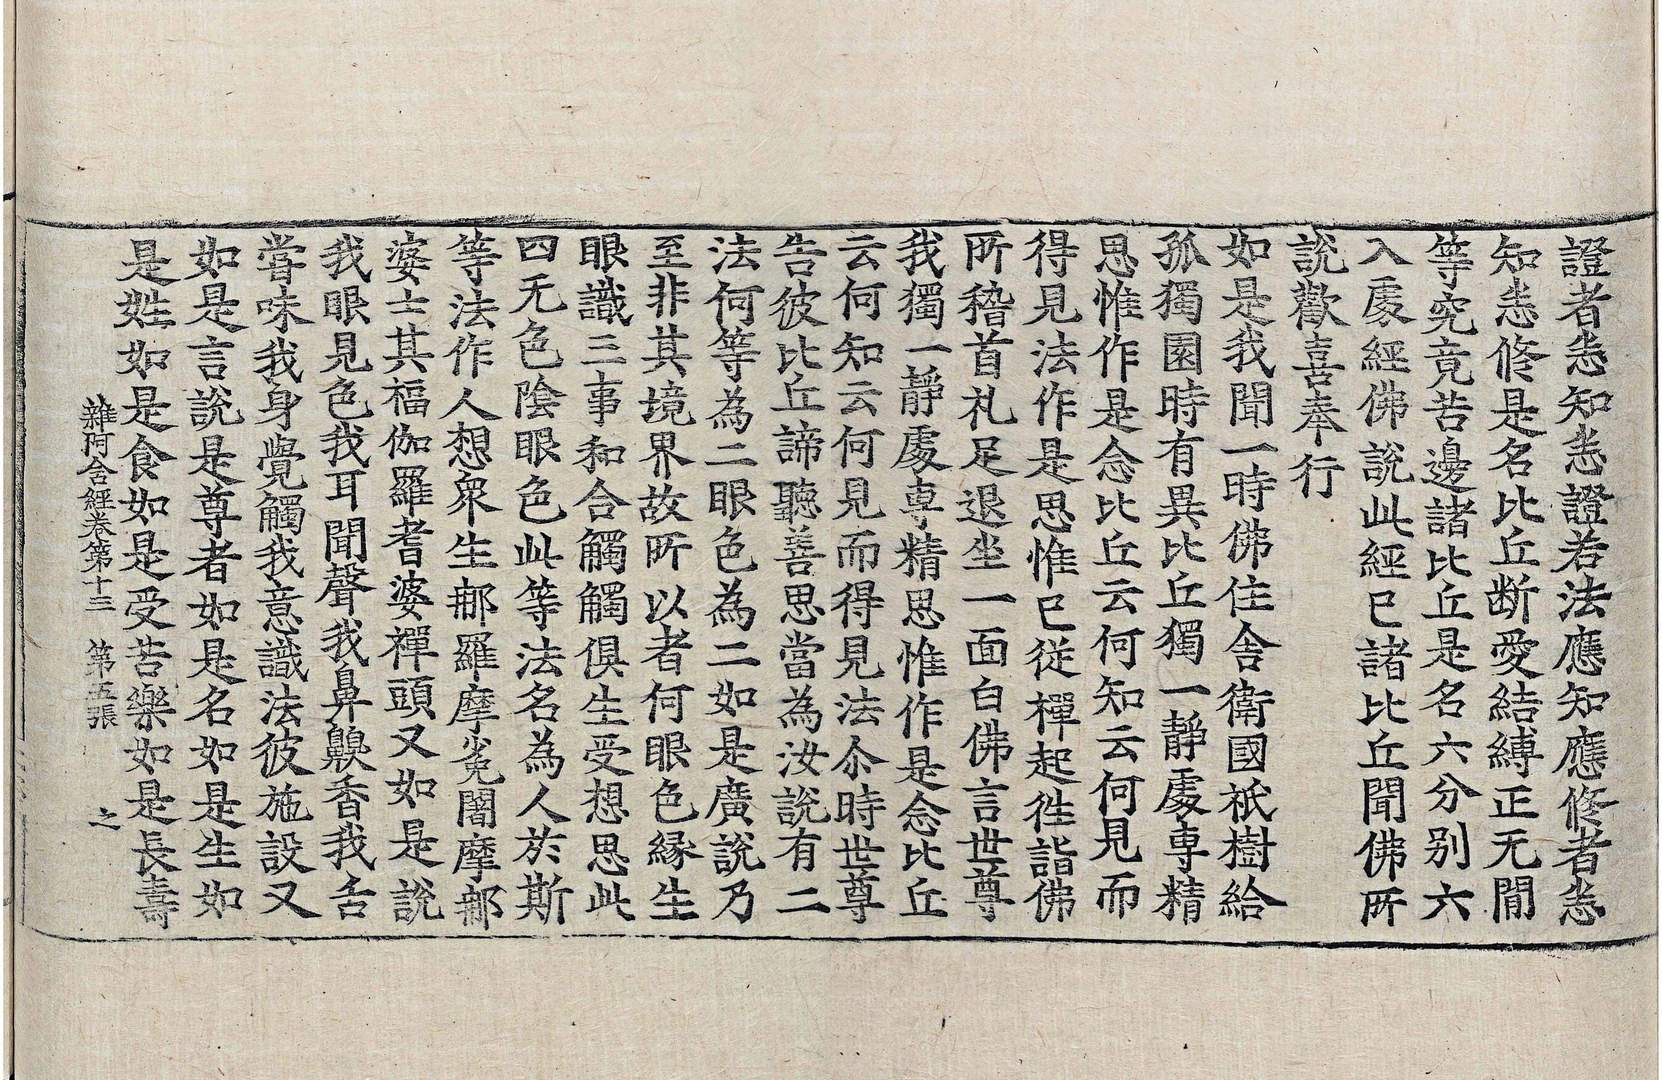 證者悉知悉證若法應知應修者悉
知悉修是名比丘断愛結縛正无閒
等究竟苦邊諸比丘是名六分别六
入處經佛說此經已諸比丘聞佛所
說歡喜奉行
如是我聞一時佛住舎衛國祇樹給
孤獨園時有異比丘獨一靜處専精
思惟作是念比丘云何知云何見而
得見法作是思惟已從禪起徃詣佛
所稽首礼足退坐一面白佛言世尊
我獨一靜處専精思惟作是念比丘
云何知云何見而得見法尒時世尊
告彼比丘諦聽善思當為汝說有二
法何等為二眼色為二如是廣說乃
至非其境界故所以者何眼色緣生
眼識三事和合觸觸俱生受想思此
四无色陰眼色此等法名為人於斯
等法作人想衆生那羅摩㝹闍摩那
婆士其福伽羅耆婆禪頭又如是說
我眼見色我耳聞聲我鼻齅香我舌
甞味我身覺觸我意識法彼施設又
如是言說是尊者如是名如是生如
是姓如是食如是受苦樂如是長壽
雜阿含經卷第十三 第五張 之